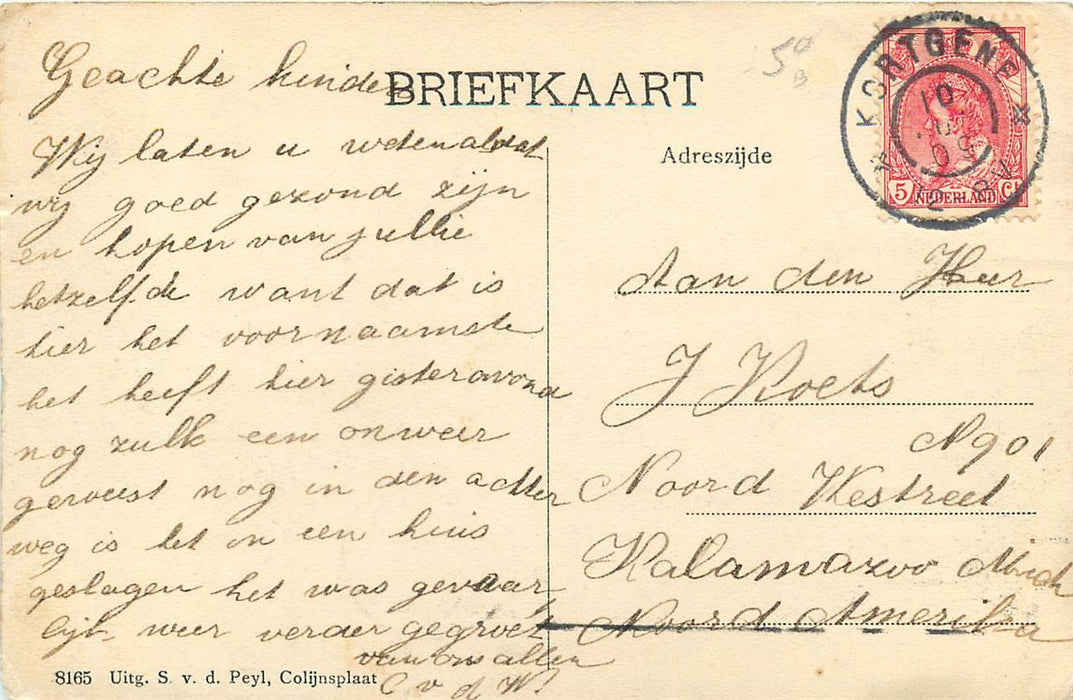 BRIEFKAART
Adreszijde
Geachte kinders
Wij laten u weten al dat
wij goed gezond zijn
en hopen van jullie
hetzelfde want dat is
hier het voornaamste
het heeft hier gisteravond
nog zulk een onweer
geweest nog in den achter
weg is het in een huis
geslagen het was gevaar
lijk weer verder gegroet
van ons allen
C v d W
8165 Uitg. S. v. d. Peyl, Colijnsplaat
KORTGENE
5 NEDERLAND Ct
Aan den Heer
J Koets
N 901
Noord Westreet
Kalamazoo Mich
Noord Amerika